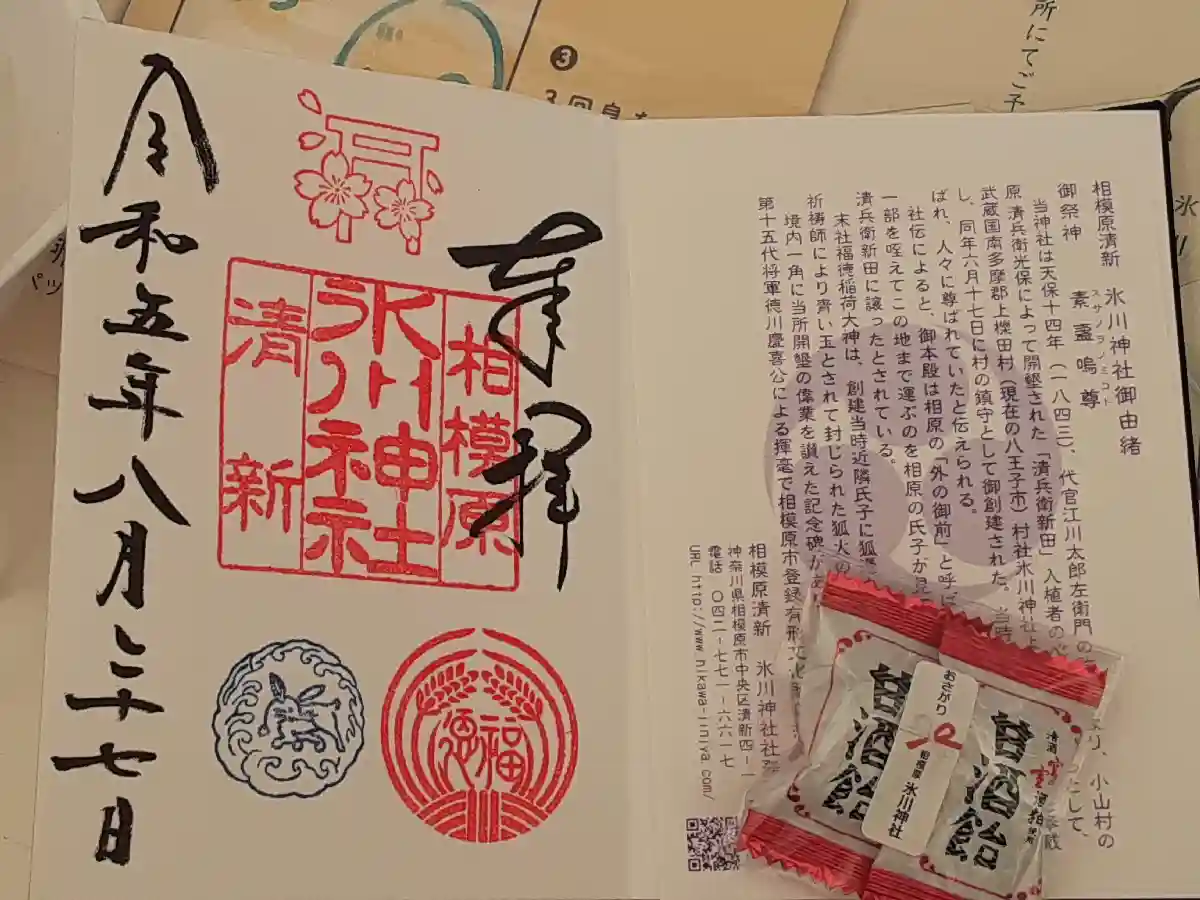 奉拝
相模原
氷川神社
清新
福
恩
令和五年八月二十七日
相模原清新 氷川神社御由緒
御祭神 素盞嗚尊
スサノヲノミコト
当神社は天保十四年(一八四三)、代官江川太郎左衛門の
り、小山村の
原 清兵衛光保によって開墾された「清兵衛新田」入植者の
として、
武蔵国南多摩郡上椚田村(現在の八王子市)村社氷川神社
し、同年六月十七日に村の鎮守として御創建された。当時
ばれ、人々に尊ばれていたと伝えられる。
社伝によると、御本殿は相原の「外の御前」と呼ば
一部を咥えてこの地まで運ぶのを相原の氏子が見
清兵衛新田に譲ったとされている。
末社福徳稲荷大神は、創建当時近隣氏子に狐
祈祷師により青い玉とされて封じられた狐火の
境内一角に当所開墾の偉業を讃えた記念碑があ
第十五代将軍徳川慶喜公による揮毫で相模原市登録有形文化
相模原清新 氷川神社社務
神奈川県相模原市中央区清新四-一
電話 〇四二-七七一-六六一七
URL http://www.hikawa-jinjya.com/
おさがり
相模原 氷川神社
銘酒飴
銘酒飴
清酒
酒粕使用
❸
所にてご予
氷川